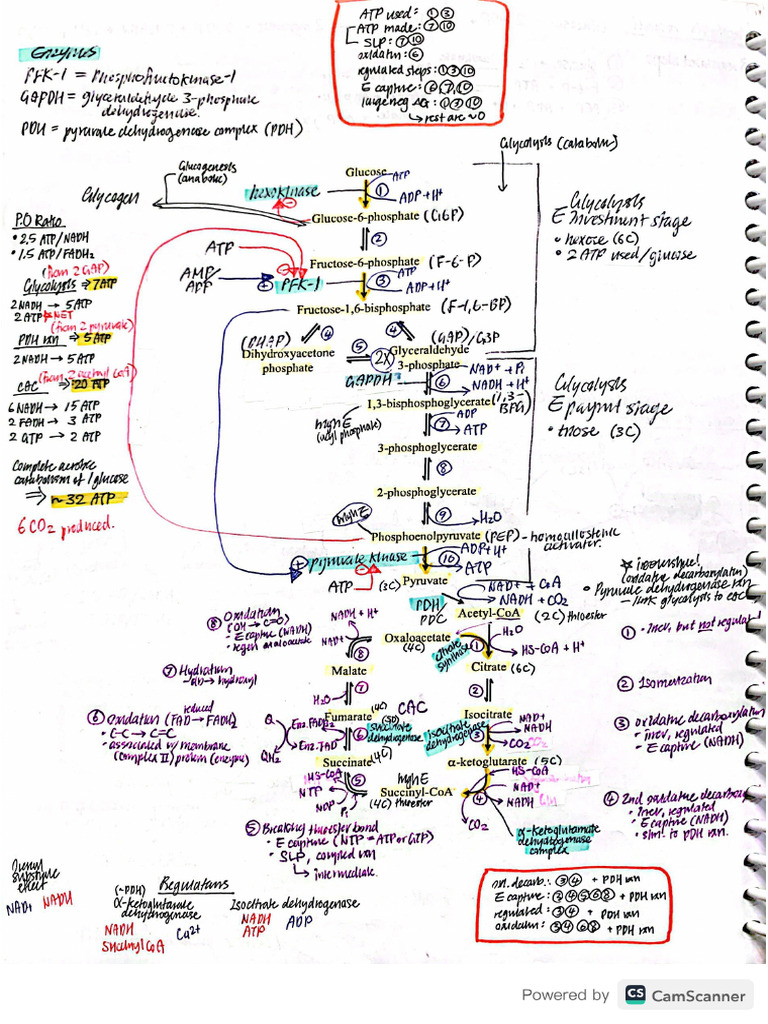 ATP used: ① ③
ATP made: ⑦ ⑩
SLP: ⑦ ⑩
oxidatn: ⑥
regulated steps: ① ③ ⑩
E capture: ⑥, ⑦, ⑩
large neg ΔGs: ① ③ ⑩
↳ rest are ~0
Enzymes
PFK-1 = Phosphofructokinase-1
GAPDH = glyceraldehyde 3-phosphate
dehydrogenase.
PDH = pyruvate dehydrogenase complex (PDH)
Glycolysis (catabolic)
Glucogenesis
(anabolic)
Glycogen
hexokinase
Glucose
①
ATP
ADP + H+
Glucose-6-phosphate (G6P)
②
Fructose-6-phosphate (F-6-P)
ATP
AMP/
ADP
PFK-1
③
ATP
ADP + H+
Fructose-1,6-bisphosphate (F-1,6-BP)
④
④
(DHAP)
Dihydroxyacetone
phosphate
⑤
2X
(GAP)/G3P
Glyceraldehyde
3-phosphate
GAPDH
⑥
NAD+ + Pi
NADH + H+
1,3-bisphosphoglycerate (1,3-
BPG)
high E
(acyl phosphate)
⑦
ADP
ATP
3-phosphoglycerate
⑧
2-phosphoglycerate
⑨
H2O
high E
Phosphoenolpyruvate (PEP) - homoallosteric
activator.
pyruvate kinase
⑩
ADP + H+
ATP
ATP
(3C) Pyruvate
Glycolysis
E investment stage
• hexose (6C)
• 2 ATP used/glucose
Glycolysis
E payout stage
• triose (3C)
P.O Ratio
• 2.5 ATP/NADH
• 1.5 ATP/FADH2
(from 2 GAP)
Glycolysis ⇒ 7 ATP
2 NADH → 5 ATP
2 ATP NET
(from 2 pyruvate)
PDH rxn ⇒ 5 ATP
2 NADH → 5 ATP
(from 2 acetyl coA)
CAC ⇒ 20 ATP
6 NADH → 15 ATP
2 FADH → 3 ATP
2 GTP → 2 ATP
Complete aerobic
catabolism of 1 glucose
⇒ ~32 ATP
6 CO2 produced.
PDH
PDC
NAD+ + CoA
NADH + CO2
☆ irreversible!
(oxidative decarboxylation)
• Pyruvate dehydrogenase rxn
– link glycolysis to CAC
Acetyl-CoA (2C) thioester
Oxaloacetate
(4C)
citrate
synthase
①
H2O
HS-CoA + H+
Citrate (6C)
②
Isocitrate
isocitrate
dehydrogenase
③
NAD+
NADH
CO2 CO2
α-ketoglutarate (5C)
④
HS-CoA
NAD+
NADH
CO2
α-ketoglutamate
dehydrogenase
complex
high E
Succinyl-CoA
(4C) thioester
⑤
HS-CoA
NTP
NDP
Pi
Succinate (4C)
⑥
succinate
dehydrogenase
Enz.FADH2
Enz.FAD
Q
QH2
Fumarate (4C)
CAC
⑦
H2O
Malate
⑧
NAD+
NADH + H+
① - irrev, but not regulated
② Isomerization
③ oxidative decarboxylation
• irrev, regulated
• E capture (NADH)
④ 2nd oxidative decarbox
• irrev, regulated
• E capture (NADH)
• siml. to PDH rxn.
⑤ Breaking thioester bond
• E capture (NTP = ATP or GTP)
• SLP, coupled rxn
↳ intermediate.
⑥ Oxidation (FAD → FADH2)
reduced
• C-C → C=C
• associated w/ membrane
(complex II) protein (enzyme)
⑦ Hydration
⑧ Oxidation
(OH → C=O)
• E capture (NADH)
• regen oxaloacetate
substrate
effect
NAD+ NADH
Regulators
(~PDH)
α-ketoglutarate
dehydrogenase
NADH
Succinyl CoA
Ca2+
Isocitrate dehydrogenase
NADH
ATP
ADP
oxi. decarb.: ③ ④ + PDH rxn
E capture: ③ ④ ⑤ ⑥ ⑧ + PDH rxn
regulated: ③ ④ + PDH rxn
oxidatn: ③ ④ ⑥ ⑧ + PDH rxn
Powered by CS CamScanner